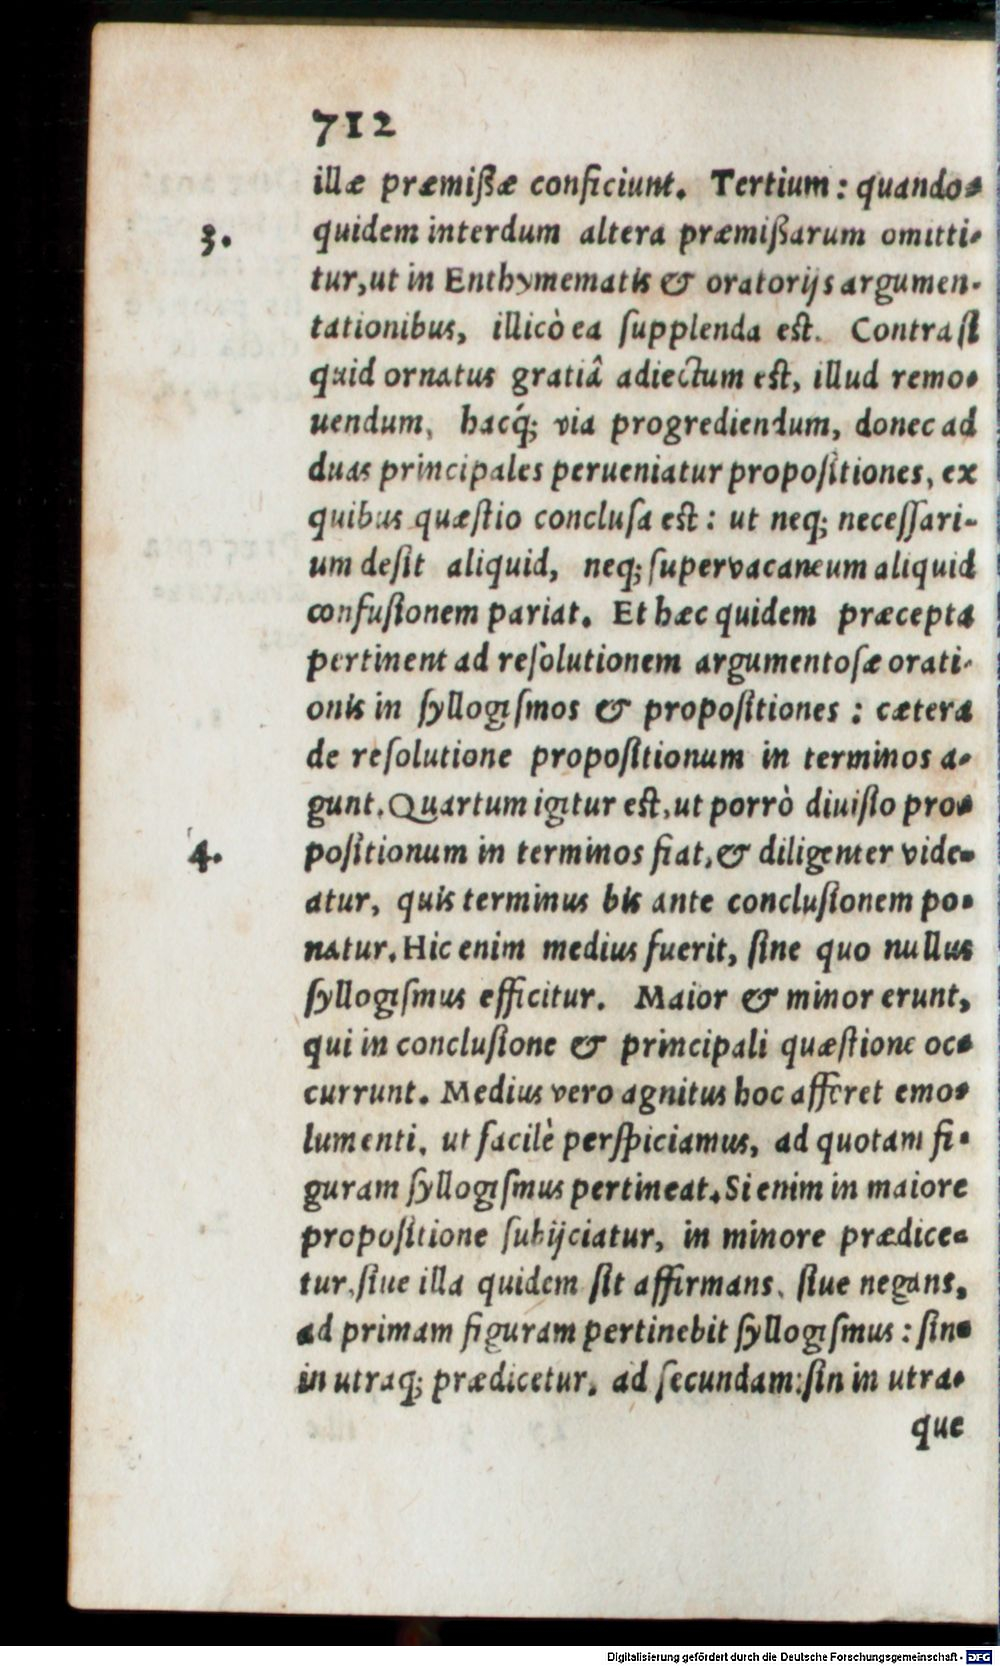 712
illæ præmißæ conficiunt. Tertium: quando-
3.
quidem interdum altera præmißarum omitti-
tur, ut in Enthymematis & oratorijs argumen-
tationibus, illicò ea ſupplenda eſt. Contra ſi
quid ornatus gratiâ adiectum eſt, illud remo-
uendum, hacq́; via progrediendum, donec ad
duas principales perueniatur propoſitiones, ex
quibus quæſtio concluſa eſt: ut neq; neceſſari-
um deſit aliquid, neq; ſupervacaneum aliquid
confuſionem pariat. Et hæc quidem præcepta
pertinent ad reſolutionem argumentoſæ orati-
onis in ſyllogiſmos & propoſitiones: cætera
de reſolutione propoſitionum in terminos a-
gunt. Quartum igitur eſt, ut porrò diuiſio pro-
4.
poſitionum in terminos fiat, & diligenter vide-
atur, quis terminus bis ante concluſionem po-
natur. Hic enim medius fuerit, ſine quo nullus
ſyllogiſmus efficitur. Maior & minor erunt,
qui in concluſione & principali quæſtione oc-
currunt. Medius vero agnitus hoc afferet emo-
lumenti, ut facilè perſpiciamus, ad quotam fi-
guram ſyllogiſmus pertineat. Si enim in maiore
propoſitione ſubijciatur, in minore prædice-
tur, ſiue illa quidem ſit affirmans, ſiue negans,
ad primam figuram pertinebit ſyllogiſmus: ſin-
in utraq; prædicetur, ad ſecundam: ſin in utra-
que
Digitalisierung gefördert durch die Deutsche Forschungsgemeinschaft - DFG